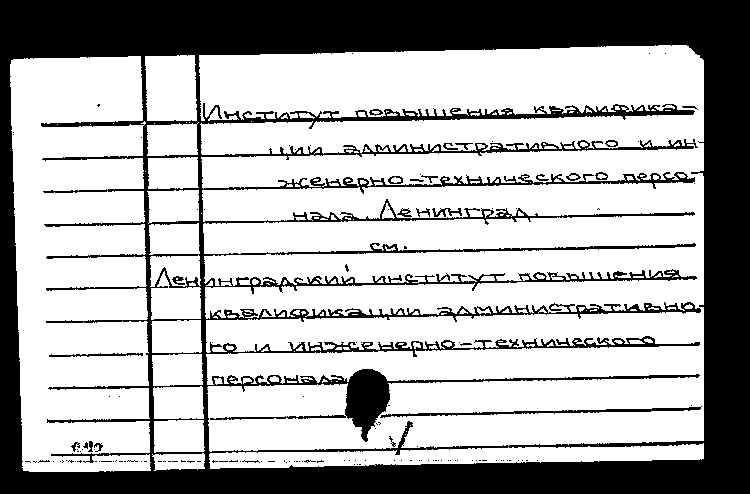 Институт повышения квалифика-
ции административного и ин-
женерно-технического персо-
нала. Ленинград.
см.
Ленинградский институт повышения
квалификации административно-
го и инженерно-технического
персонала